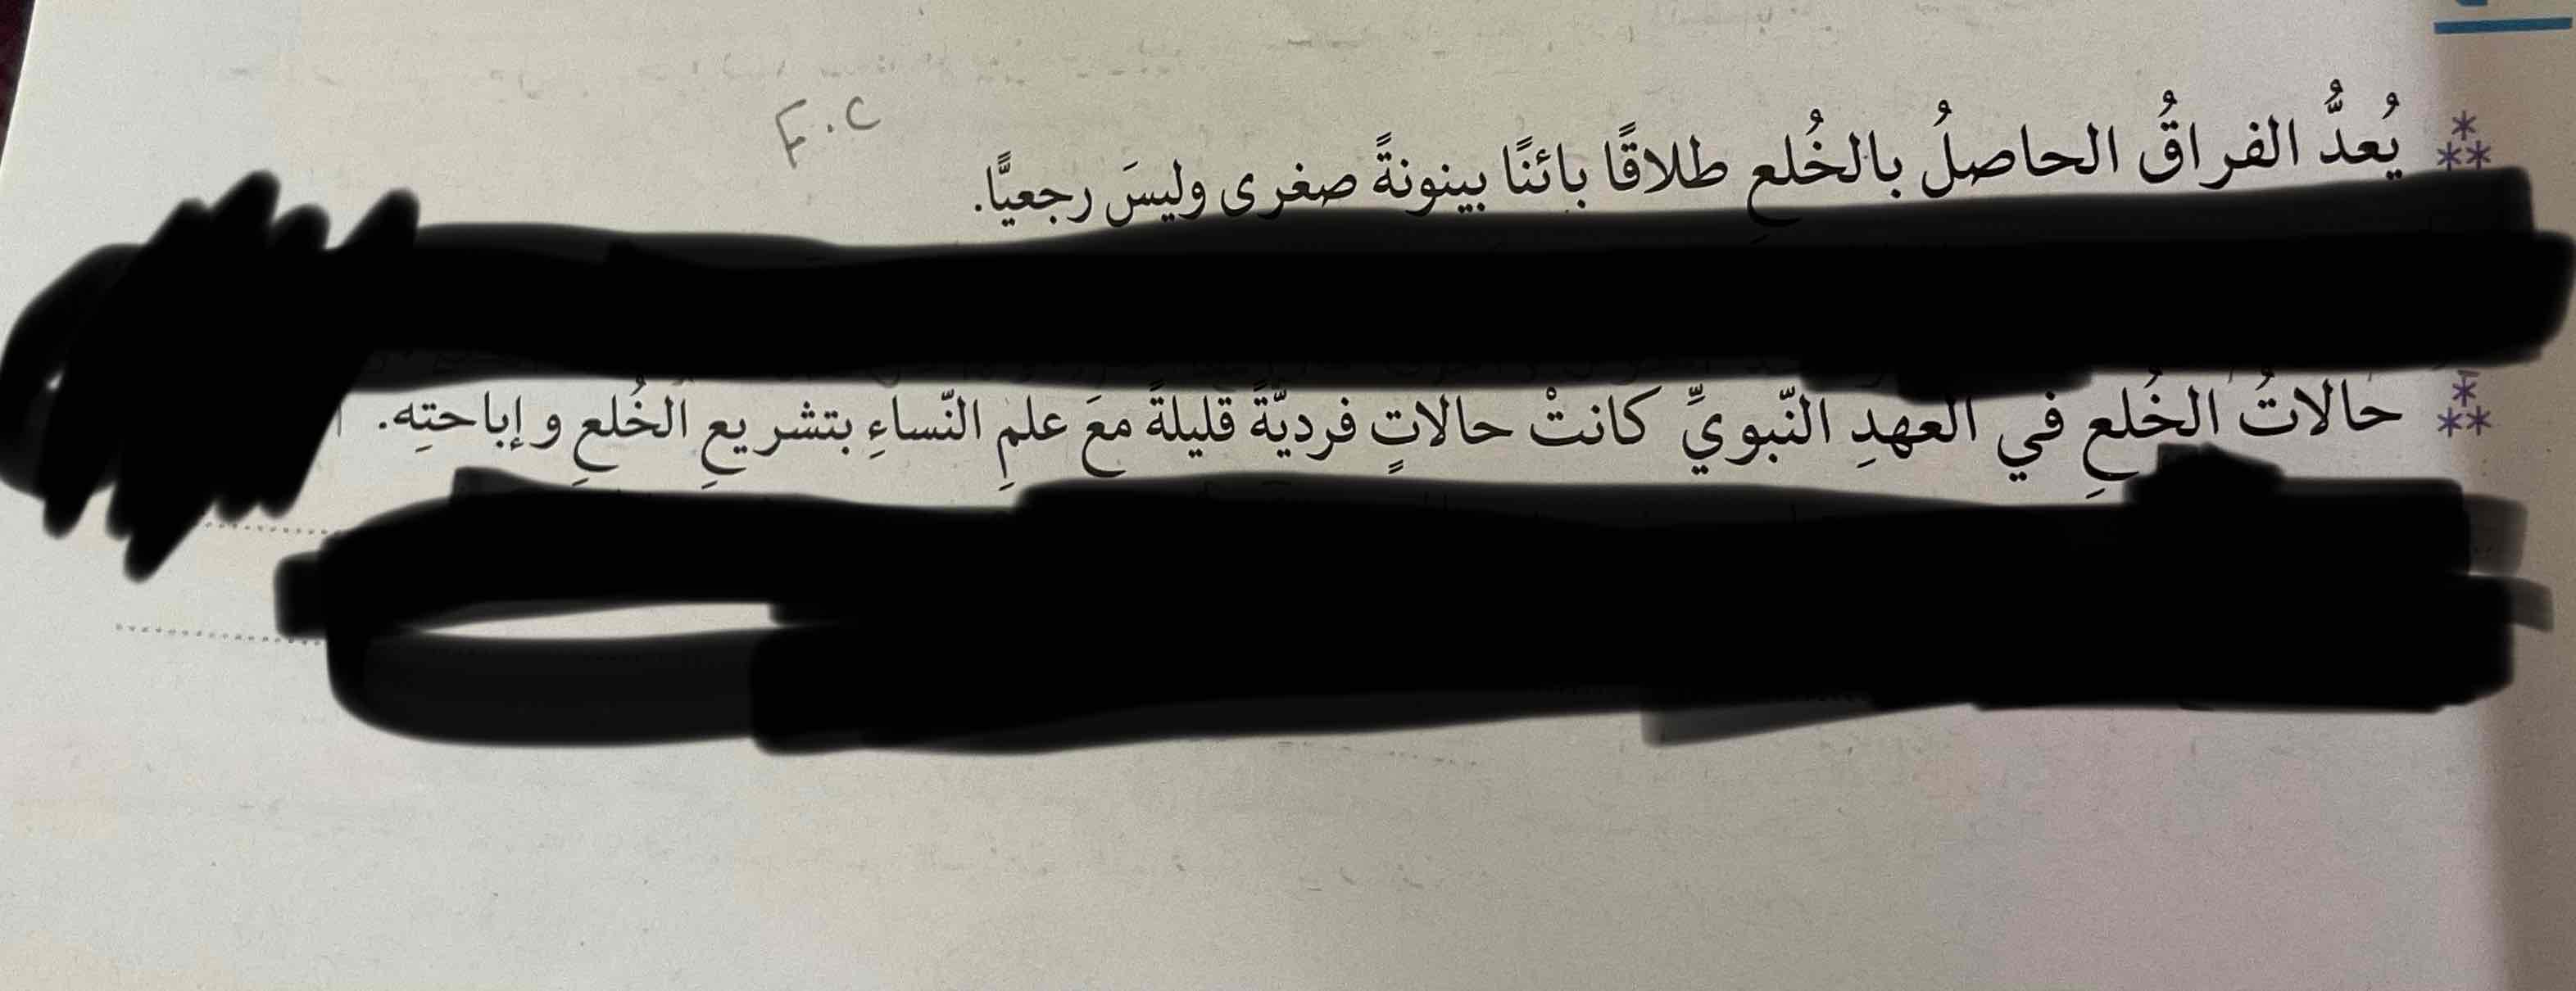 F.C
يُعدُّ الفراقُ الحاصلُ بالخُلعِ طلاقًا بائنًا بينونةً صغرى وليسَ رجعيًّا.
حالاتُ الخُلعِ في العهدِ النّبويِّ كانتْ حالاتٍ فرديّةً قليلةً معَ علمِ النّساءِ بتشريعِ الخُلعِ وإباحتِه.